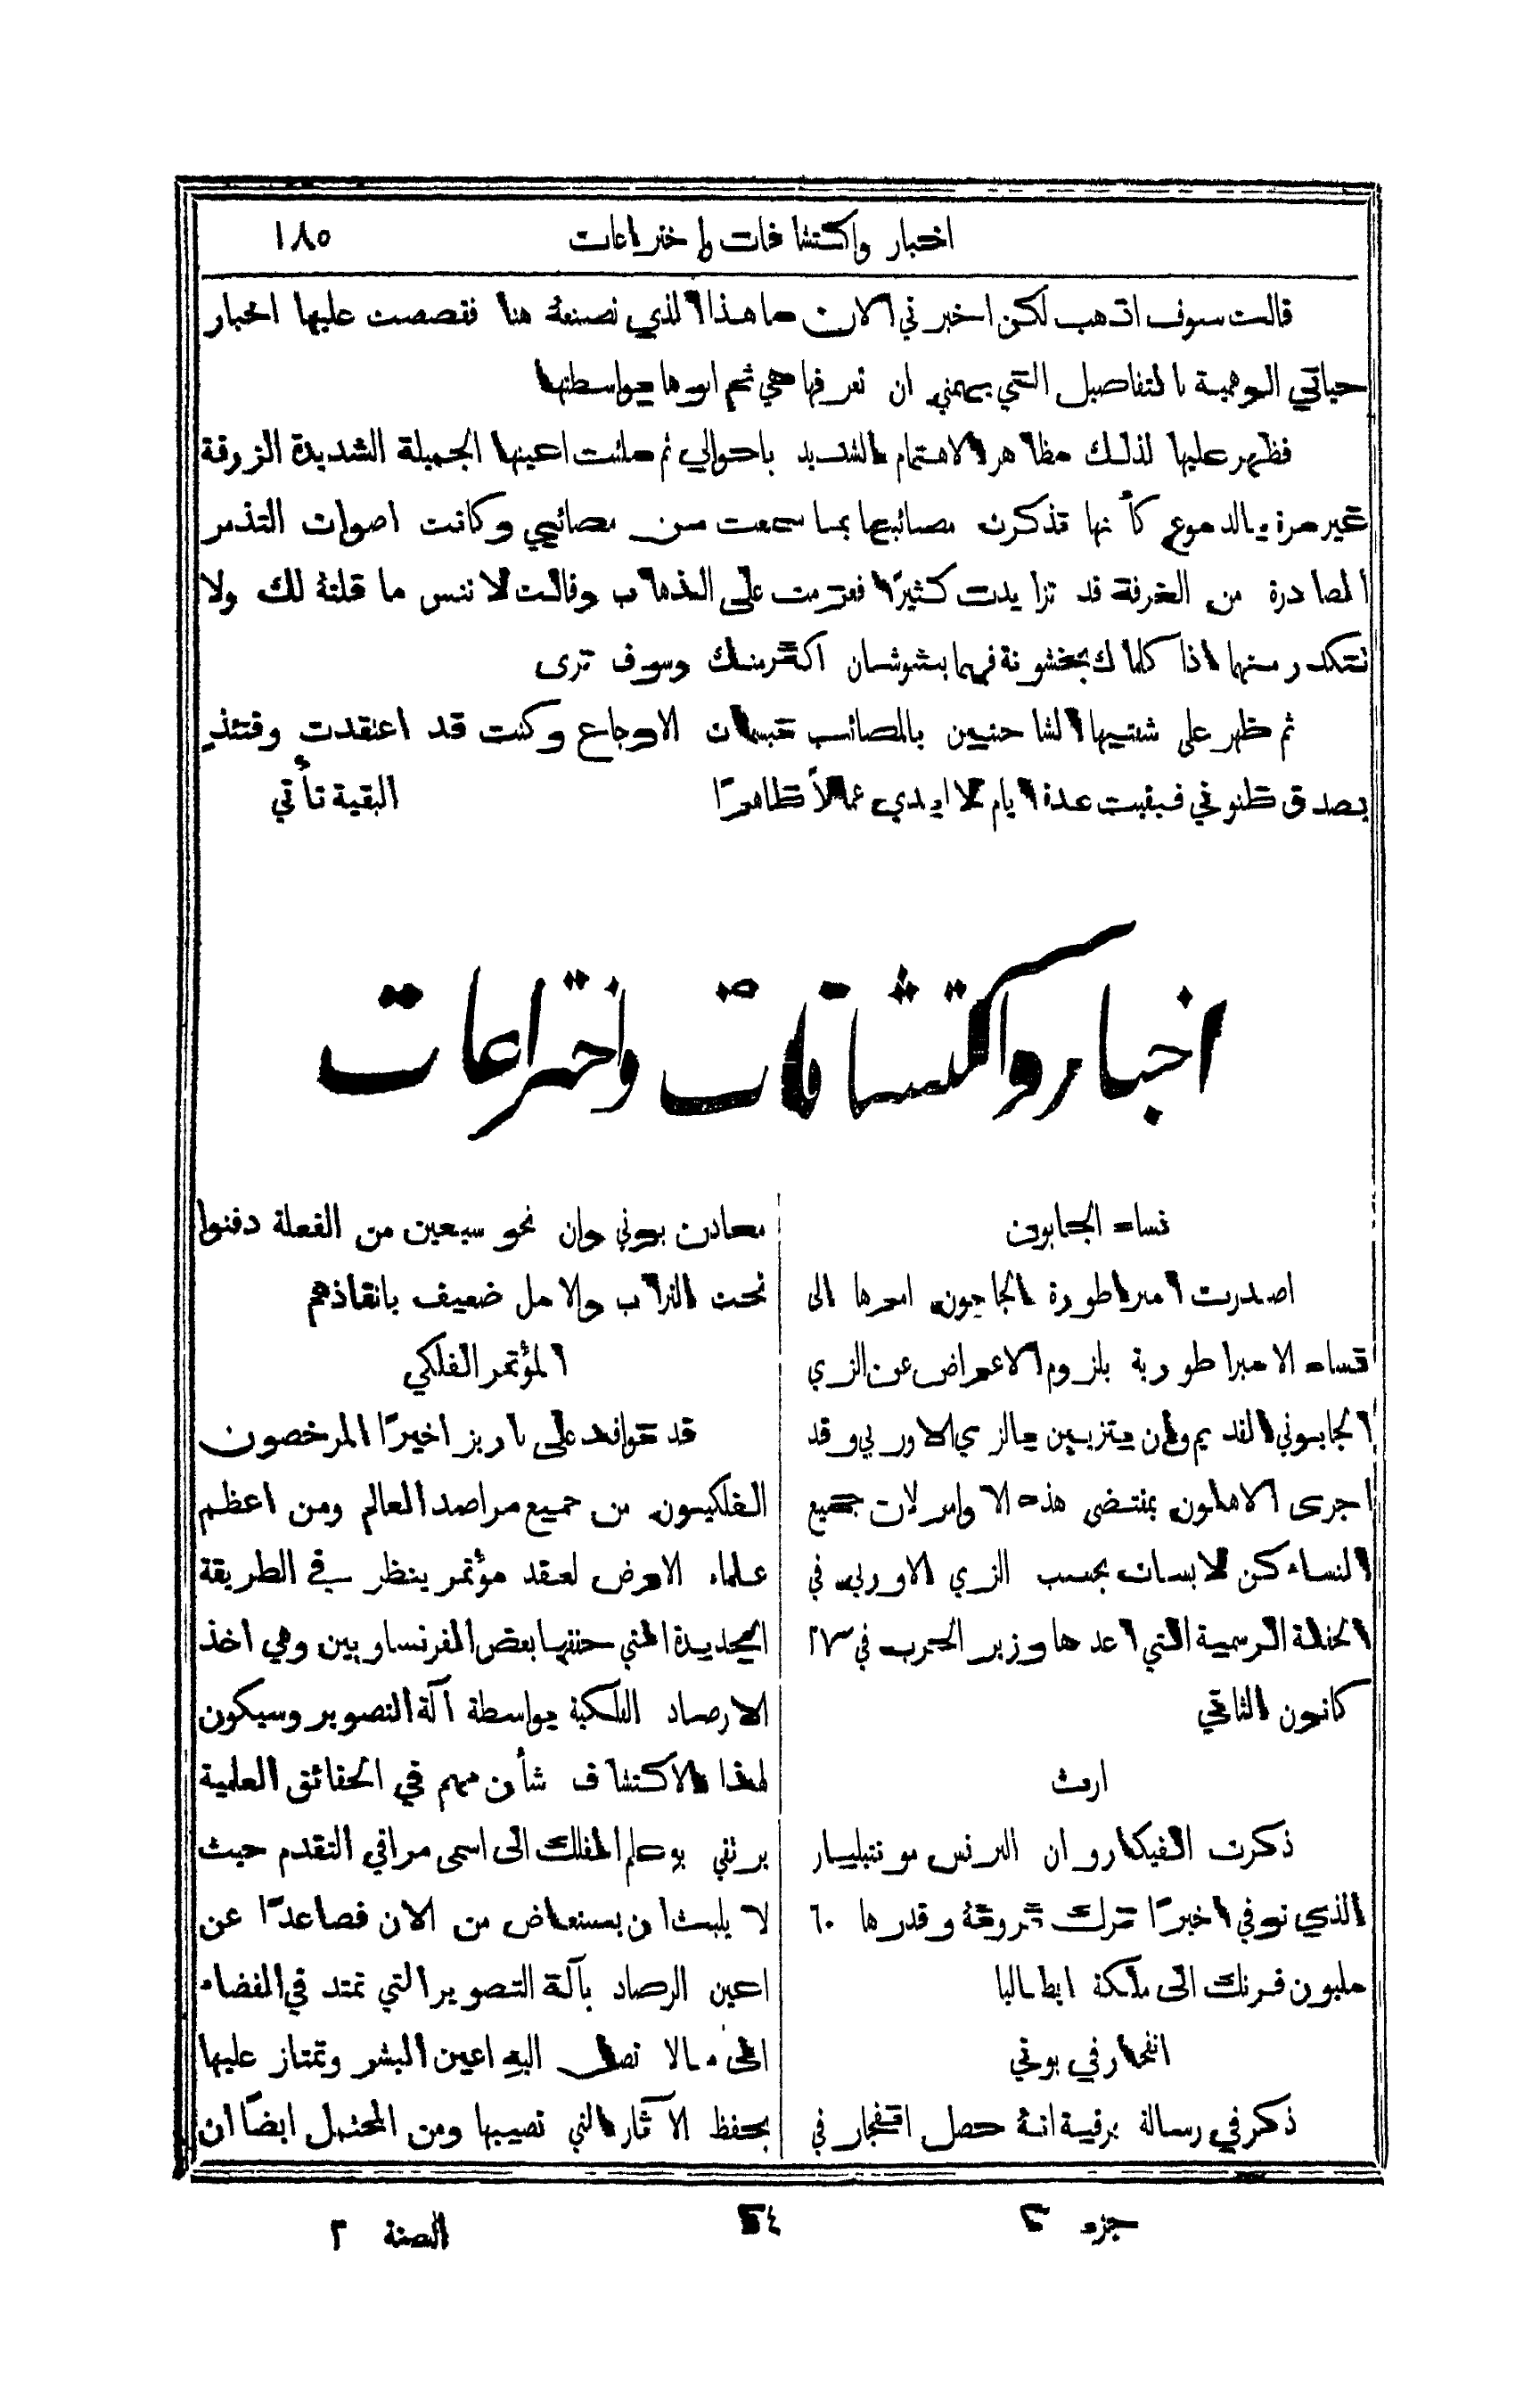 اخبار واكتشافات واختراعات ١٨٥
قالت سوف اذهب لكن اخبرني الان ما هذا الذي نصنعهُ هنا فقصصت عليها اخبار
حياتي الوهمية بالتفاصيل التي يهمني ان تعرفها هي ثم ابوها بواسطتها
فظهر عليها لذلك مظاهر الاهتمام الشديد باحوالي ثم ملئت اعينها الجميلة الشديدة الزرقة
غير مرة بالدموع كأنها تذكرت مصائبها بما سمعت من مصائبي وكانت اصوات التذمر
الصادرة من الغرفة قد تزايدت كثيرًا فعزمت على الذهاب وقالت لا تنس ما قلتهُ لك ولا
تتكدر منهما اذا كلماك بخشونة فهما بشوشان اكثر منك وسوف ترى
ثم ظهر على شفتيها الشاحنين بالمصائب تبسمات الاوجاع وكنت قد اعتقدت وقتئذٍ
بصدق ظنوني فبقيت عدة ايام لا ابدي عملاً ظاهرًا البقية تأتي
اخبار واكتشافات واختراعات
نساء الجابون
اصدرت امبراطورة الجابون امرها الى
نساء الامبراطورية بلزوم الاعراض عن الزي
الجابوني القديم وان يتزيين بالزي الاوربي وقد
اجرى الاهلون بمقتضى هذه الاوامر لان جميع
النساء كن لابسات بحسب الزي الاوربي في
الحفلة الرسمية التي اعدها وزير الحرب في ٢٧
كانون الثاني
ارث
ذكرت الفيكارو ان البرنس مونتبليسار
الذي توفي اخيرًا ترك ثروتهُ وقدرها ٦٠
مليون فرنك الى ملكة ايطاليا
انفجار في بوني
ذكر في رسالة برقية انهُ حصل انفجار في
معادن بوني وان نحو سبعين من الفعلة دفنوا
تحت التراب والامل ضعيف بانقاذهم
المؤتمر الفلكي
قد توافد على باريز اخيرًا المرخصون
الفلكيون من جميع مراصد العالم ومن اعظم
علماء الارض لعقد مؤتمر ينظر في الطريقة
الجديدة التي حققها بعض الفرنساويين وهي اخذ
الارصاد الفلكية بواسطة آلة التصوير وسيكون
لهذا الاكتشاف شأن مهم في الحقائق العلمية
يرتقي به علم الفلك الى اسمى مراقي التقدم حيث
لا يلبث ان يستعاض من الان فصاعدًا عن
اعين الرصاد بآلة التصوير التي تمتد في الفضاء
الى ما لا تصل اليهِ اعين البشر وتمتاز عليها
بحفظ الآثار التي تصيبها ومن المحتمل ايضًا ان
جزء ٤ ٢٤ السنة ٢